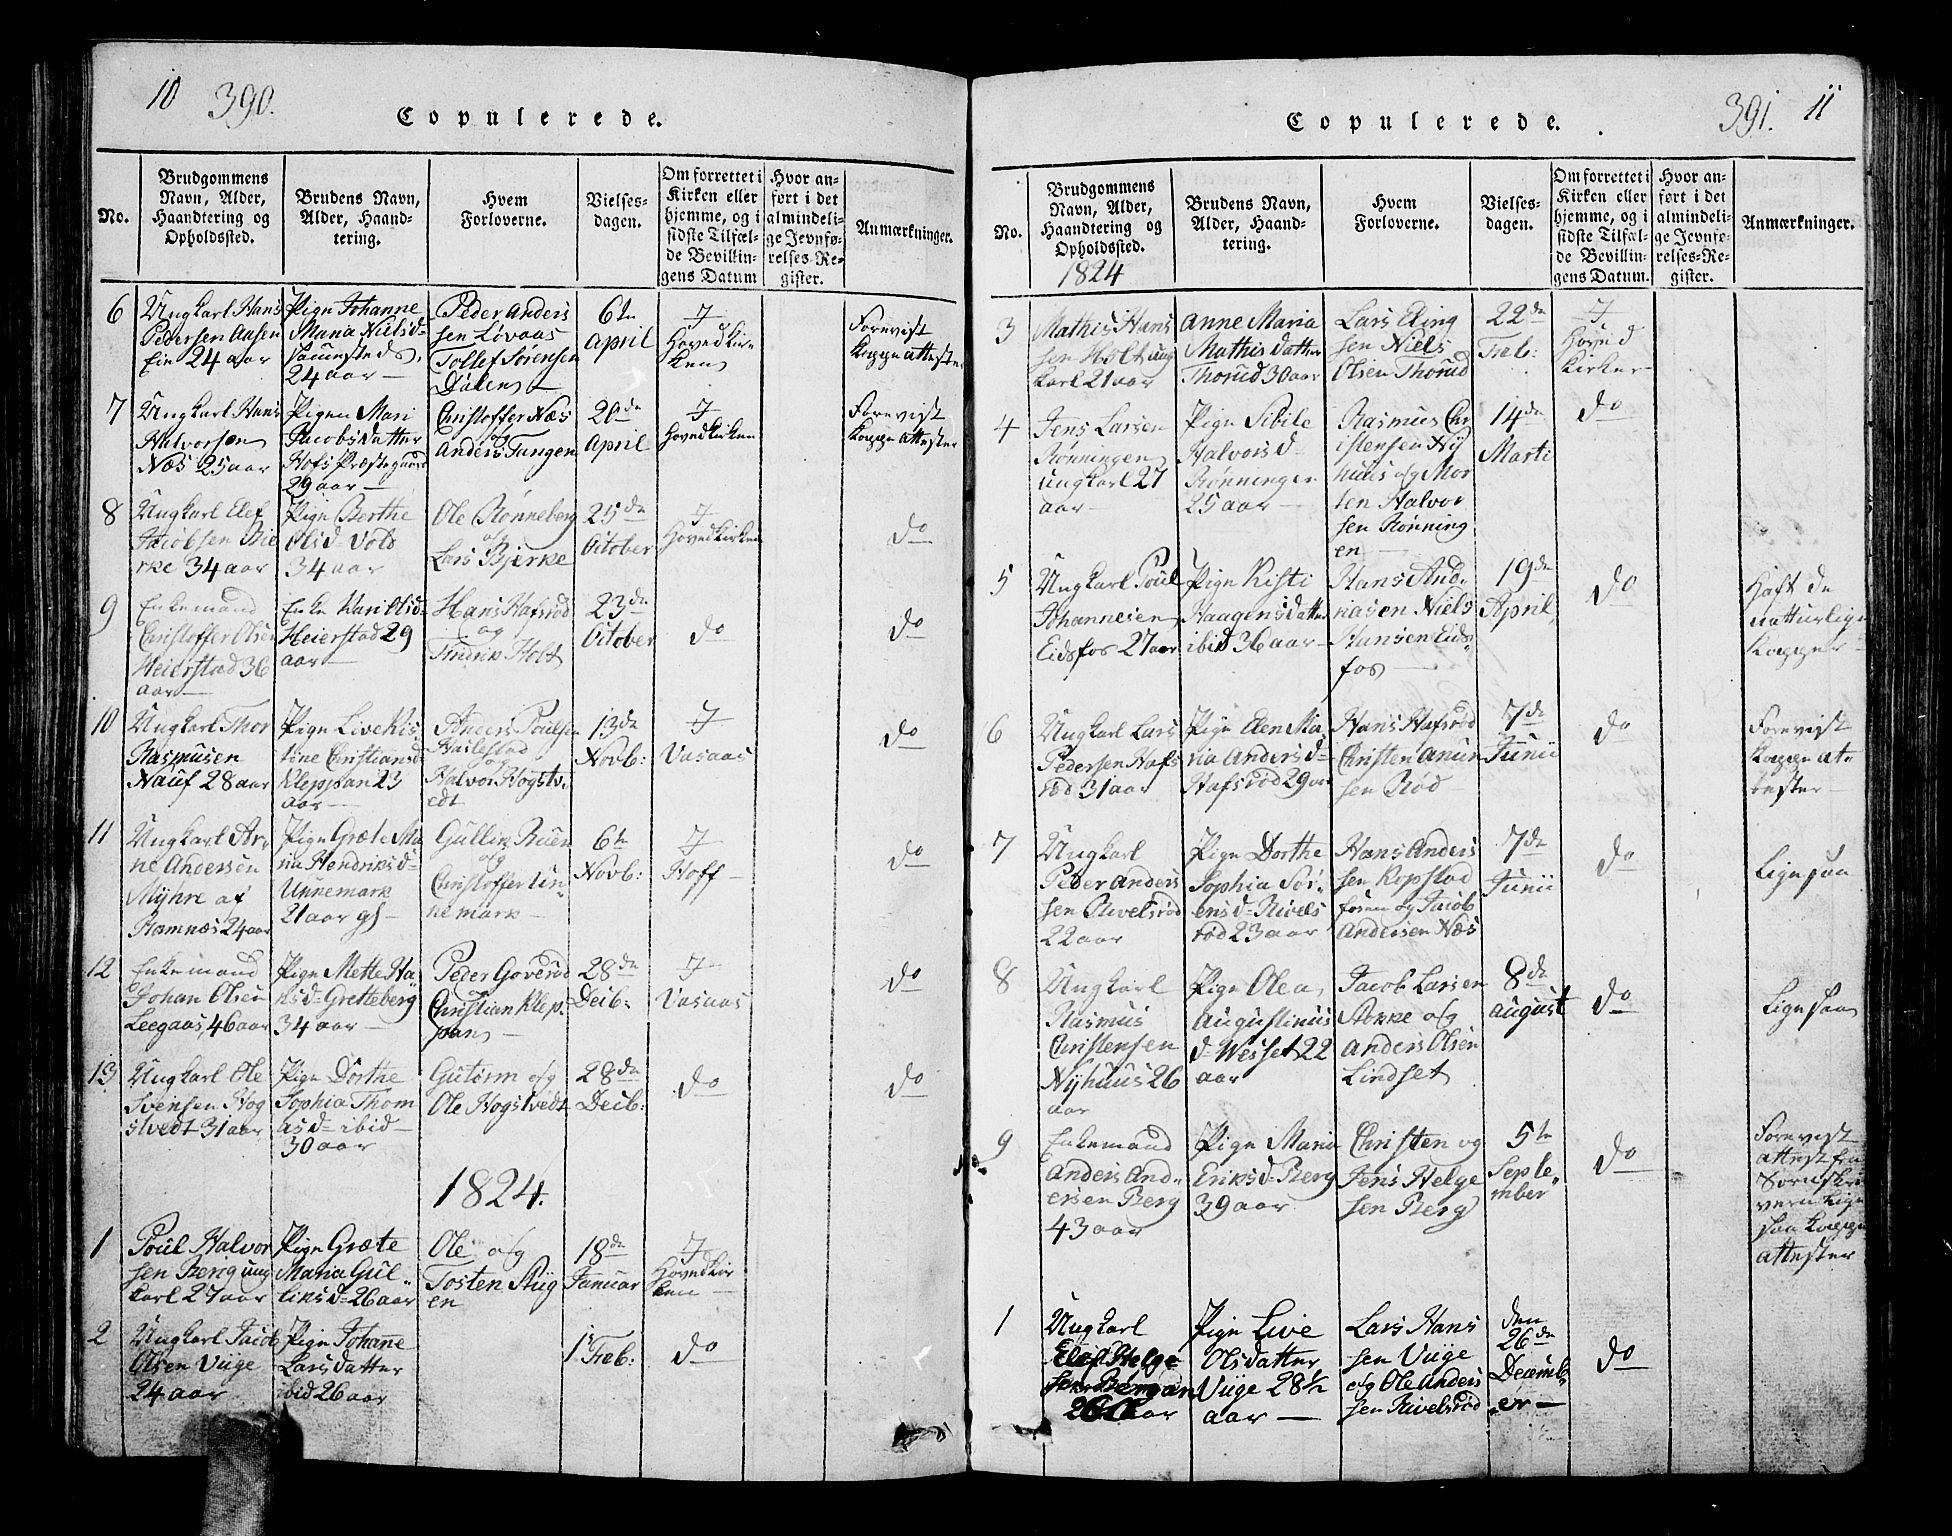 10 390.
Copulerede.
No.
Brudgommens
Navn, Alder,
Haandtering og
Opholdssted.
Brudens Navn,
Alder, Haand-
tering.
Hvem
Forloverne.
Vielses-
dagen.
Om forrettet i
Kirken eller
hjemme, og i
sidste Tilfæl-
de Bevillin-
gens Datum
Hvor an-
ført i det
almindeli-
ge Jevnfø-
relses-Re-
gister.
Anmærkninger.
6
Ungkarl Hans
Pedersen Aasen
Eie 24 aar
Pige Johanne
Maria Nielsd=
24 aar —
Peder Anders
sen Løvaas
Tollef Sørensen
Dalen —
6te
April
I
Hovedkir
ken
Forevist
Koppeattester
7
Ungkarl Hans
Halvorsen
Næs 25 aar
Pigen Mari
Jacobsdatter
Hofs Præstegaard
29 aar —
Christoffer Næs
og
Anders Tangen
20de
April
I
Hovedkirken
Forevist
Koppeattester
8
Ungkarl Elef
Jacobsen Bie
rke 34 aar
Pige Berthe
Olsd= Vold
34 aar
Ole Rønneberg
og
Lars Bjerke
25de
October
I
Hovedkirken
do
9
Enkemand
Christoffer Olsen
Heierstad 36
aar —
Enke Kari Olsd=
Heierstad 29
aar —
Hans Hafsrød
og
Fredrik Holt
23de
October
do
do
10
Ungkarl Thor
Rasmusen
Nauf 28 aar
Pige Live Kis
tine Christiansd
Kleppan 23
aar —
Anders Poulsen
Hailestad
og
Halvor Hogstv.
edt
13de
Novb:
I
Vasaas
do
11
Ungkarl Ar,
ne Andersen
Myhre af
Ramnæs 24 aar
Pige Græte Ma
ria Hendriksd=
Unnemark
21 aar gl —
Gullik Ruen
og
Christoffer Un=
nemark —
6te
Novb:
I
Hoff —
do
12
Enkemand
Johan Olsen
Leegaas, 46 aar
Pige Mette Ha
nsd= Gretteberg
34 aar —
Peder Goverød
Christian Klep,
pan —
28de
Decb:
I
Vasaas
do
13
Ungkarl Ole
Svensen Hog
stvedt 31 aar
Pige Dorthe
Sophia Thom
asd= ibid —
30 aar
Gutorm og
Ole Hogstvedt
28de
Decb:
do
do
1824.
1
Poul Halvor
sen Berig ung
karl 27 aar
Pige Græte
Maria Gul"
liksd= 26 aar
Ole og
Tosten Styg
en
18de
Januar
I
Hovedkir
ken —
2
Ungkarl Jacob
Olsen Vüge
24 aar
Pige Johane
Larsdatter
ibid 26 aar
1te Feb:
do
391. 11
Copulerede.
No.
Brudgommens
Navn, Alder,
Haandtering og
Opholdssted.
1824
Brudens Navn,
Alder, Haand-
tering.
Hvem
Forloverne.
Vielses-
dagen.
Om forrettet i
Kirken eller
hjemme, og i
sidste Tilfæl-
de Bevillin-
gens Datum.
Hvor an-
ført i det
almindeli-
ge Jevnfø-
relses-Re-
gister.
Anmærkninger.
3
Mathis Hans
sen Holt ung
karl 21 aar
Anne Maria
Mathis datter
Thorud 30 aar
Lars Eling
sen Niels
Olsen Thorud
22de
Feb:
I
Hoved
kirken
4
Jens Larsen
Rønningen
ungkarl 27
aar —
Pige Sibile
Halvorsd=
Rønningen
25 aar —
Rasmus Chr
istensen Ny
huus og Mor
ten Halvor
sen Rønning
en —
14de
Marti
do
5
Ungkarl Poul
Johannesen
Eidsfos 27 aar
Pige Kisti
Haagensdatter
ibid 36 aar —
Hans And,
riasen Niels
Hansen Eids,
fos —
19de
April
do
Haft de
naturlige
Kopper —
6
Ungkarl Lars
Pedersen Hafs
rød 31 aar
Pige Elen Ma
ria Andersd=
Hafsrød 29 aar
Hans Hafsrød
Christen Anun
sen Rød —
7de
Junii
do
Forevist
Koppeat,
tester —
7
Ungkarl
Peder Anders
sen Rivelsrød
22 aar
Pige Dorthe
Sophia Sør,
ensd= Rivels
rød 23 aar
Hans Anders
sen Kopstad
og Jacob
Andersen Næs
7de
Junii
do
Ligesaa
8
Ungkarl
Rasmus
Christensen
Nyhuus 26
aar
Pige Olea
Augustinus
d= Wesset 22
aar
Jacob Larsen
Stokke og
Anders Olsen
Lindset
8de
August
do
Ligesaa
9
Enkemand
Anders And"
ersen Berg
43 aar
Pige Maria
Eriksd= Berg
39 aar
Christen og
Jens Helge
sen Berg
5te
Septe"
mber
do
Forevist
attest fra
Sorenskri
veren Lige
saa Koppe
attester
1
Ungkarl
Elef Helge
sen Bergan
26 aar
Pige Live
Olsdatter
Vüge 28½
aar —
Lars Hans
sen Vüge
og Ole Anders
sen Rivelsrød
den
26de
Decemb,
er —
do